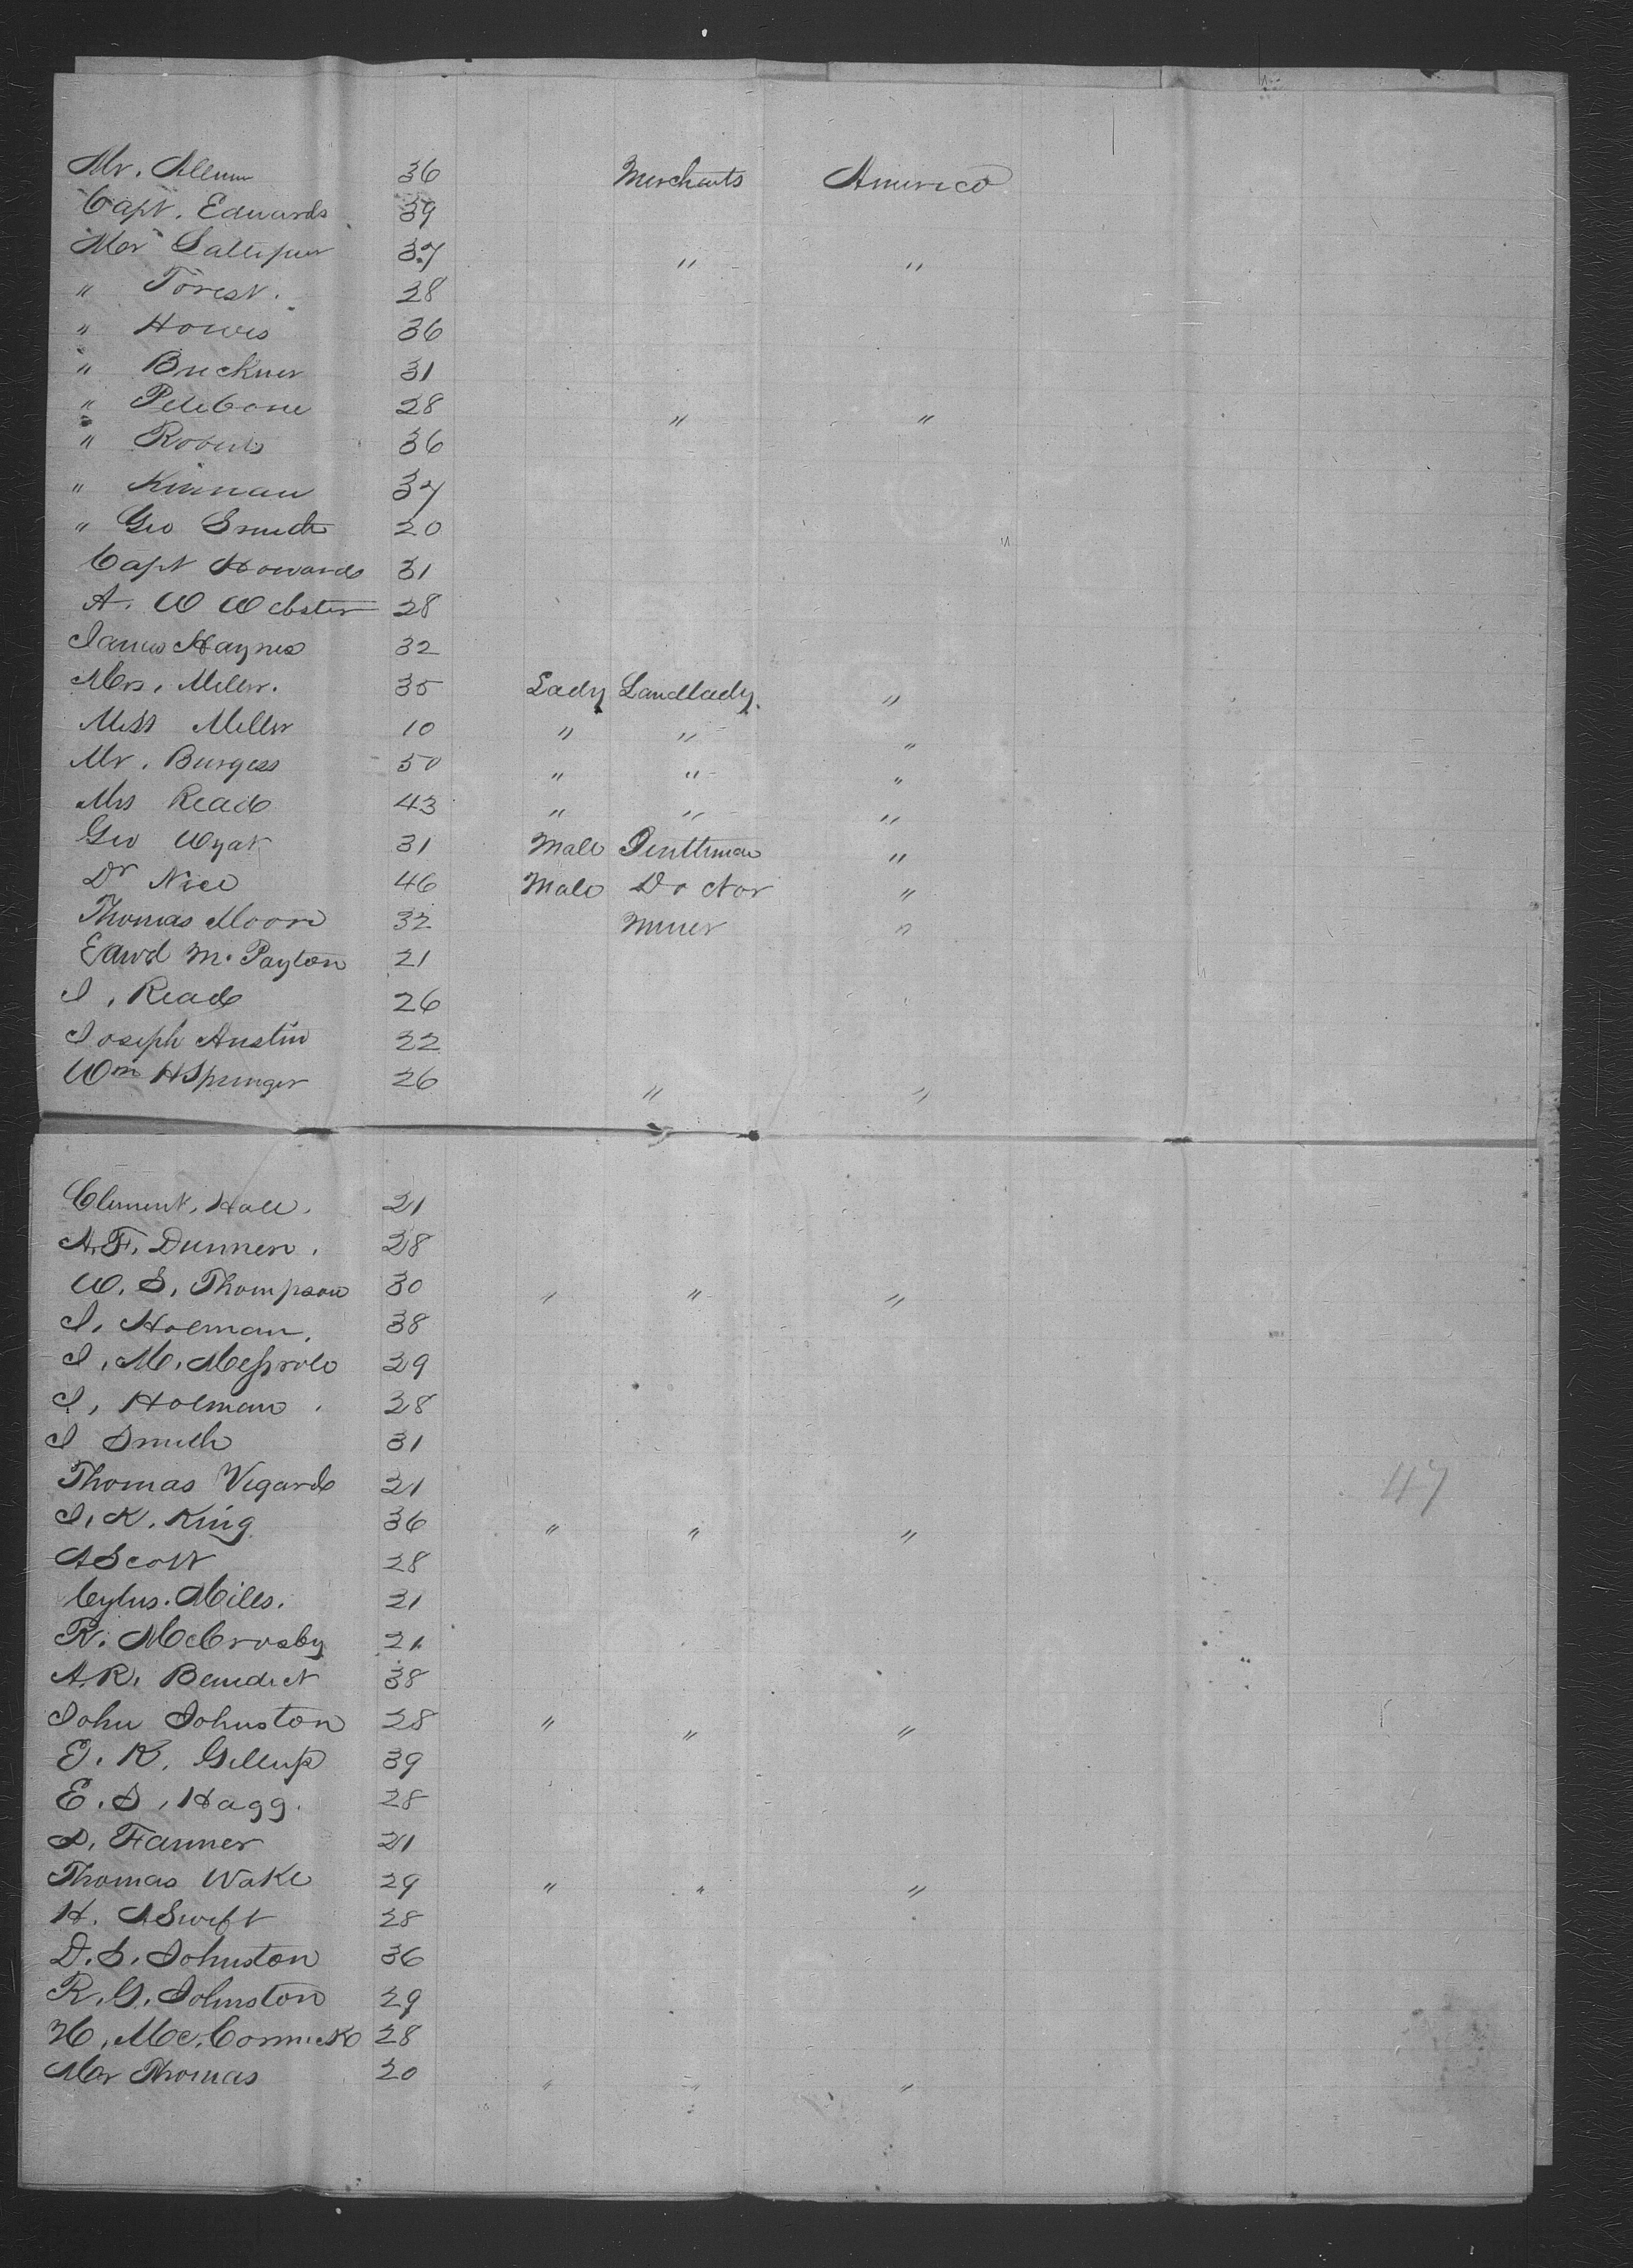 Mr. Allum 36 Merchants America
Capt. Edwards 39
Mr 37 " "
" Forest. 28
" Howes 36
" Bruckner 31
" Petebone 28 " "
" Roberts 36
" Kinnan 37
" Geo Smith 20
Capt Howards 31
A. W Webster 28
James Haynes 32
Mrs. Miller. 35 Lady Landlady. "
Miss Miller 10 " " "
Mr. Burgess 50 " " "
Mrs Read 43 " " "
Geo Wyat 31 Male Gentleman "
Dr Nice 46 Male Doctor "
Thomas Moore 32 Miner "
Edwd M. Payton 21
J. Read 26
Joseph Austin 22
Wm H Springer 26 " "
Clement. Hall. 21
A. F. Dunnen. 28
W. S. Thompson 30 " " "
J. Holman. 38
J. M. 29
J. Holman. 28
J Smith 31
Thomas Vegard 21
J. K. King 36 " " "
47
A Scott 28
Cylus. Miles. 21
R. McCrosby 21
A. R. Benedict 38
John Johnston 28 " " "
E. R. Gillup 39
E. S. Hagg. 28
S. Fanner 21
Thomas Wake 29 " " "
H. A Swift 28
D. S. Johnston 36
R. G. Johnston 29
H. Mc. Cormick 28
Mr Thomas 20 " " "